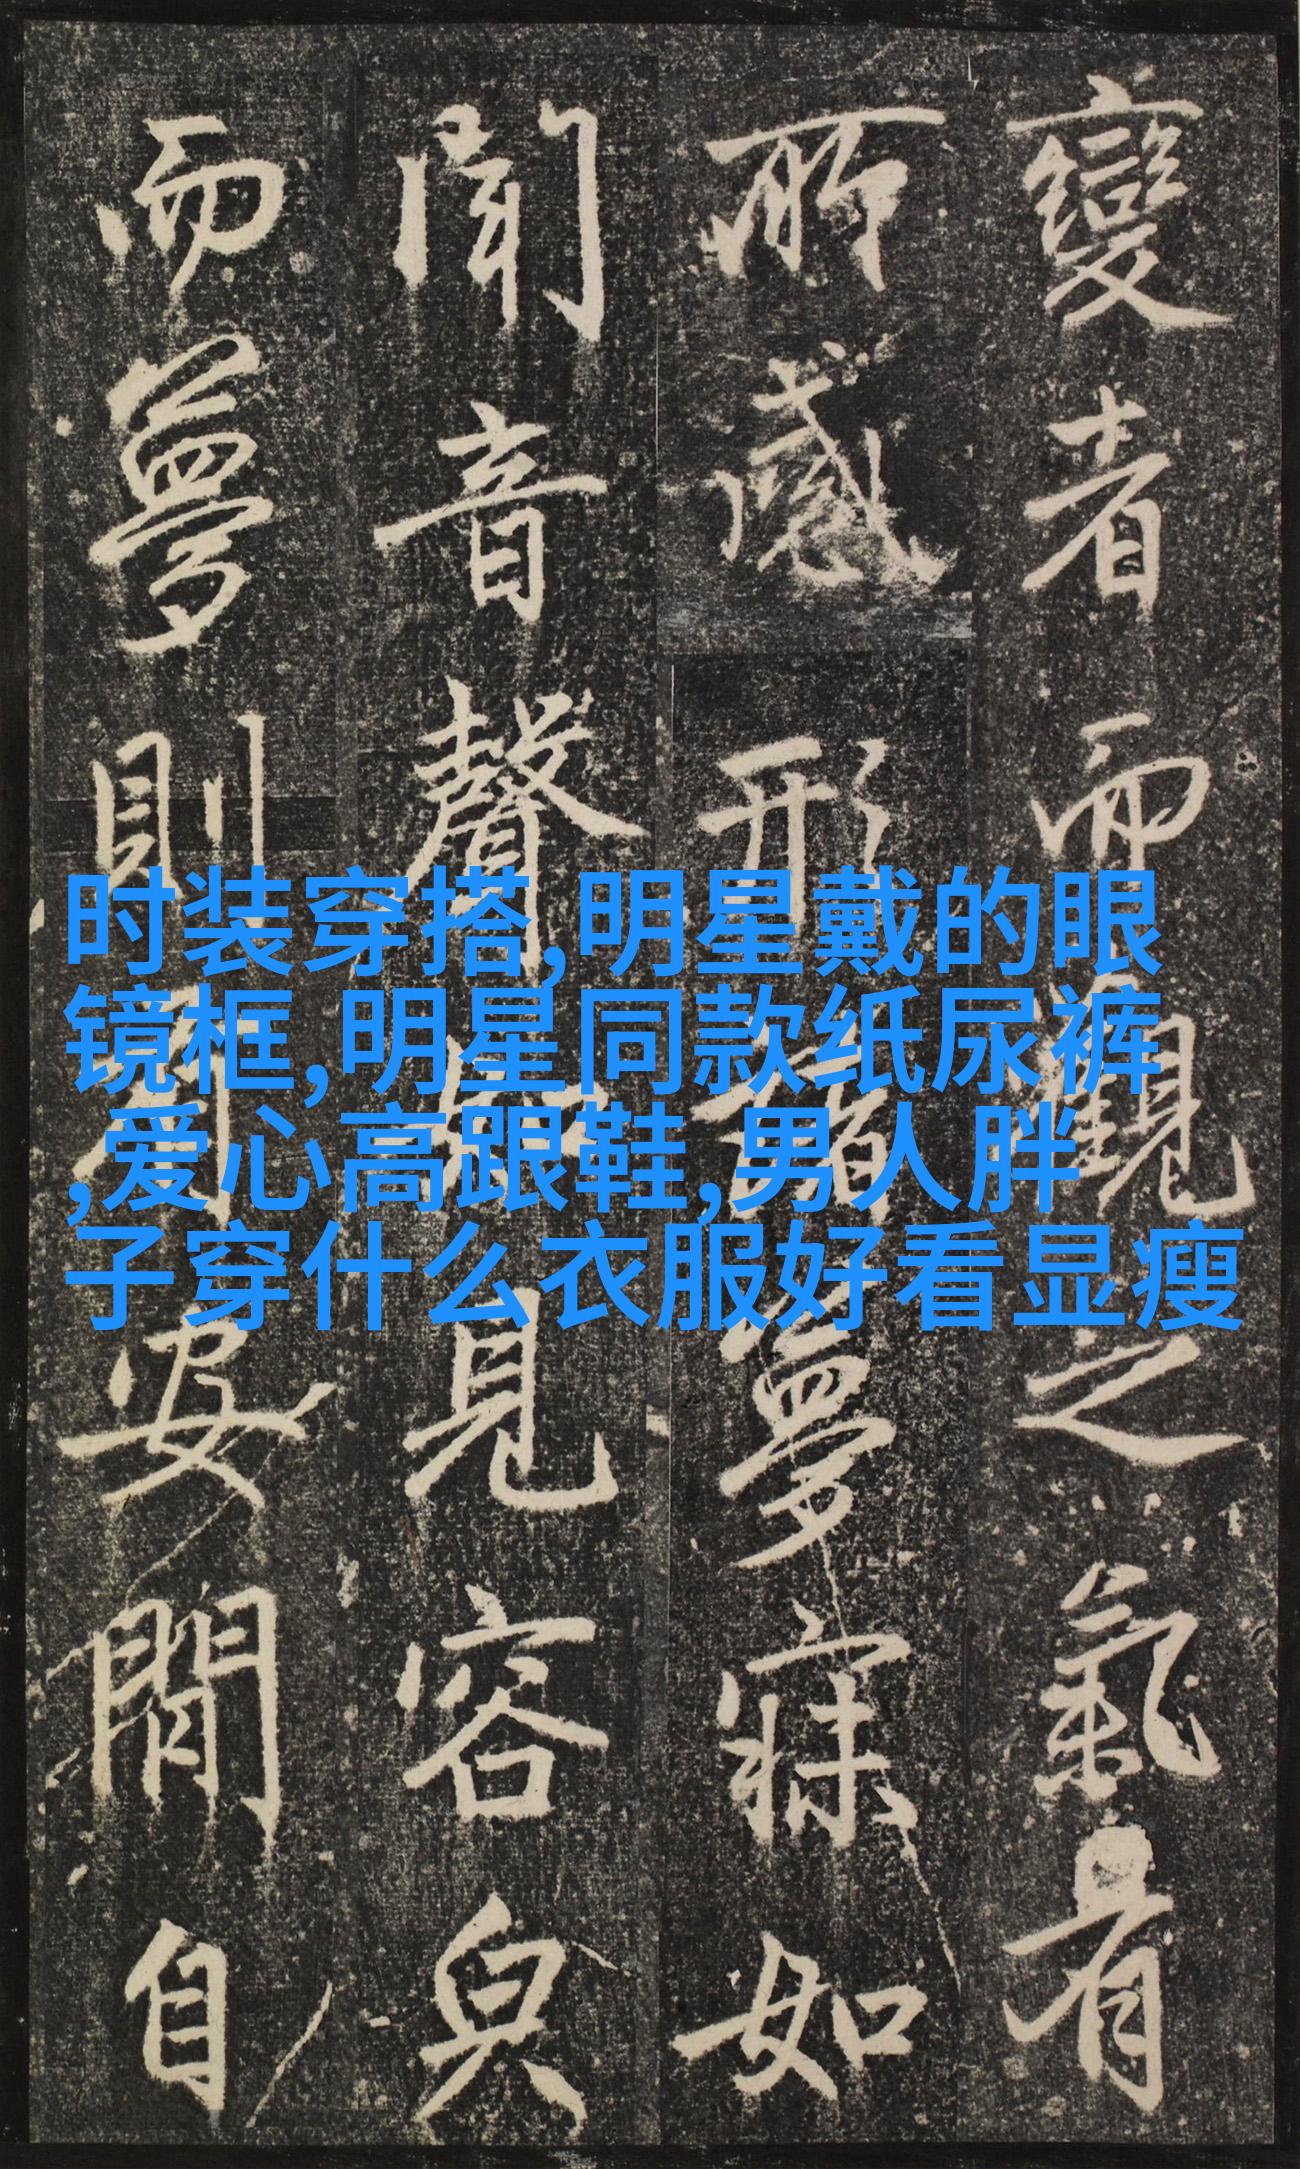 變者而觀之氣有
所感形諸夢寐如
聞音聲如見容皃
而夢則安閒自
时装穿搭,明星戴的眼
镜框,明星同款纸尿裤
,爱心高跟鞋,男人胖
子穿什么衣服好看显瘦